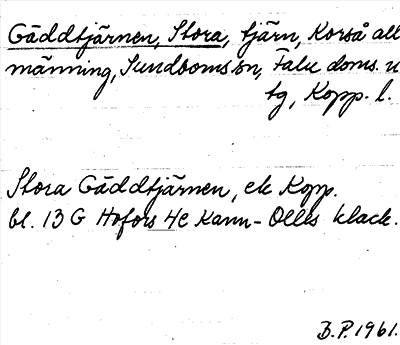 Gäddtjärnen, Stora, tjärn, Korså all
männing, Sundborns sn, Falu doms. u
tg, Kopp. l.
Stora Gäddtjärnen, ek Kopp.
bl. 13 G Hofors 4e Kann-Olles klack.
B.P. 1961.